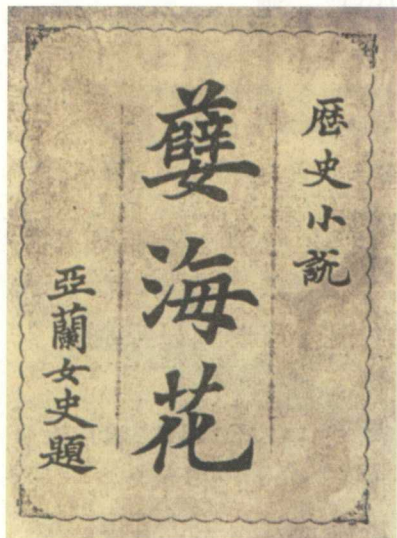 歷史小説
孽海花
亞蘭女史題